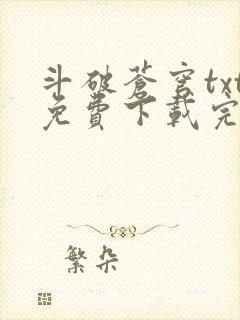 斗破苍穹txt
免費下載完
繁朵